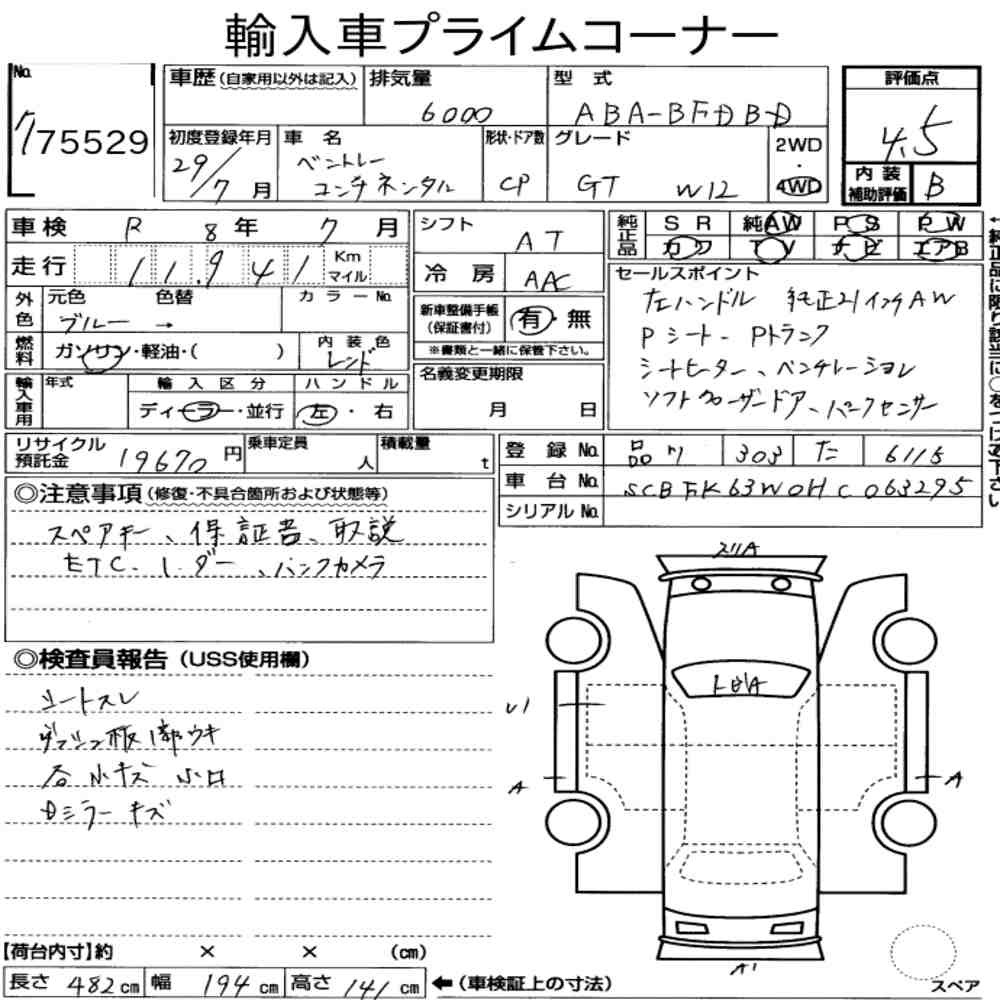 輸入車プライムコーナー
No. 775529
車歴(自家用以外は記入) 排気量 6000 型式 ABA-BFDBD
評価点 4.5
初度登録年月 29/7月 車名 ベントレー コンチネンタル 形状・ドア数 CP グレード GT W12 2WD・4WD
内装補助評価 B
車検 R 8年 7月
シフト AT
純正品 SR 純AW PS PW
カワ TV ナビ エアB
走行 11,941 Km マイル
冷房 AAC
セールスポイント
左ハンドル 純正21インチAW
Pシート、Pトランク
シートヒーター、ベンチレーション
ソフトクローザードア、パークセンサー
←純正品に限り該当に○をつけ
下さい
外色 元色 ブルー → 色替 カラーNo.
新車整備手帳(保証書付) 有・無
※書類と一緒に保管下さい。
燃料 ガソリン・軽油・( ) 内装色 レッド
名義変更期限 月 日
輸入車用 年式 輸入区分 ディーラー・並行 ハンドル 左・右
リサイクル預託金 19670円 乗車定員 人 積載量 t
登録No. 品川 303 た 6115
車台No. SCBFK63W0HC063295
シリアルNo.
◎注意事項(修復・不具合箇所および状態等)
スペアキー、保証書、取説
ETC、レーダー、バックカメラ
◎検査員報告(USS使用欄)
シートスレ
ダッシュ板1部ウキ
各小キズ 小凹
Dミラーキズ
A
A
A1
スペア
【荷台内寸】約 × × (cm)
長さ 482cm 幅 194cm 高さ 141cm ←(車検証上の寸法)